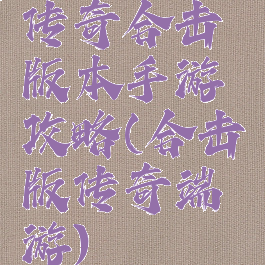 传奇合击
版本手游
攻略(合击
版传奇端
游)